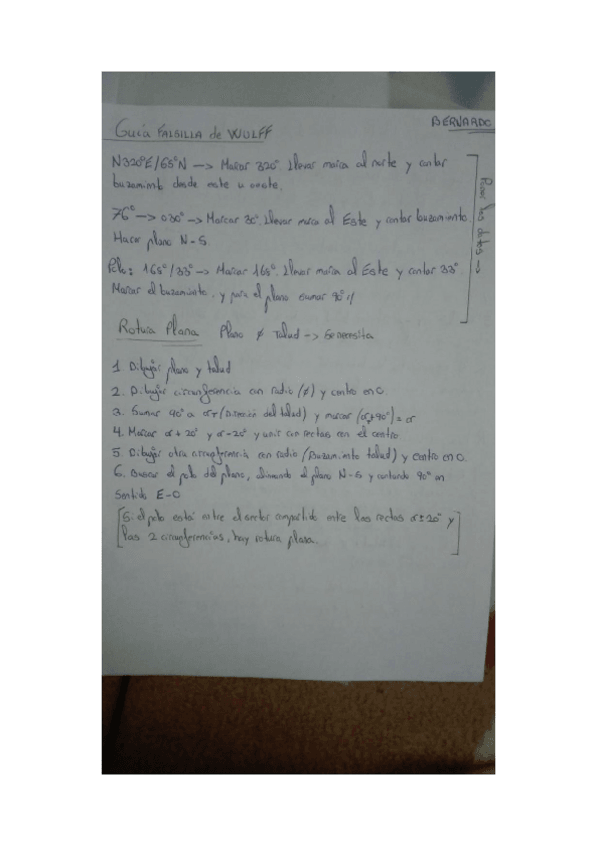 Guía FALSILLA de WULFF
BERNARDO
N320°E/65°N —> Marcar 320°. Llevar marca al norte y contar
buzamiento desde este u oeste.
—> 030° —> Marcar 30°. Llevar marca al Este y contar buzamiento
Hacer plano N-S.
Polo: 165°/33° —> Marcar 165°. Llevar marca al Este y contar 33°
Marcar el buzamiento, y para el plano sumar 90°//
Pasar los datos —>
Rotura Plana Plano ≠ Talud —> Se necesita
1. Dibujar plano y talud
2. Dibujar circunferencia con radio (ϕ) y centro en O.
3. Sumar 90° a αT (Dirección del talud) y marcar (αT+90°) = α
4. Marcar α + 20° y α - 20° y unir con rectas con el centro.
5. Dibujar otra circunferencia con radio (Buzamiento talud) y centro en O.
6. Buscar el polo del plano, alineando el plano N-S y contando 90° en
sentido E-O
Si el polo está entre el sector compartido entre las rectas α±20° y
las 2 circunferencias, hay rotura plana.